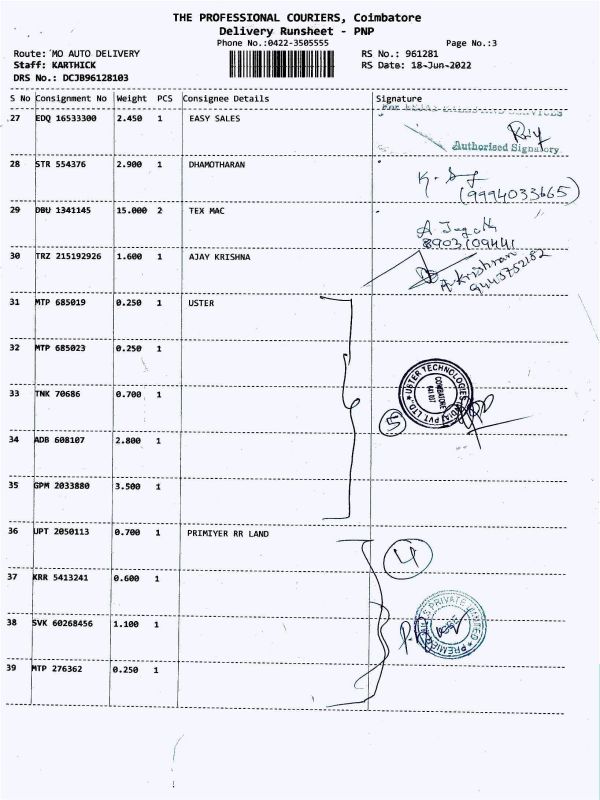 THE PROFESSIONAL COURIERS, Coimbatore
Delivery Runsheet - PNP
Phone No.:0422-3505555 Page No.:3
Route: MO AUTO DELIVERY RS No.: 961281
Staff: KARTHICK RS Date: 18-Jun-2022
DRS No.: DCJB96128103
S No Consignment No Weight PCS Consignee Details Signature
27 EDQ 16533300 2.450 1 EASY SALES
Authorised Signatory
28 STR 554376 2.900 1 DHAMOTHARAN
(9994033665)
29 DBU 1341145 15.000 2 TEX MAC
8903109441
30 TRZ 215192926 1.600 1 AJAY KRISHNA
A.Krishnan
9443752182
31 MTP 685019 0.250 1 USTER
32 MTP 685023 0.250 1
33 TNK 70686 0.700 1
USTER TECHNOLOGIES (INDIA) PVT LTD.,
COIMBATORE
641 007
5
34 ADB 608107 2.800 1
35 GPM 2033880 3.500 1
36 UPT 2050113 0.700 1 PRIMIYER RR LAND
4
37 KRR 5413241 0.600 1
38 SVK 60268456 1.100 1
PRIVATE LIMITED
39 MTP 276362 0.250 1